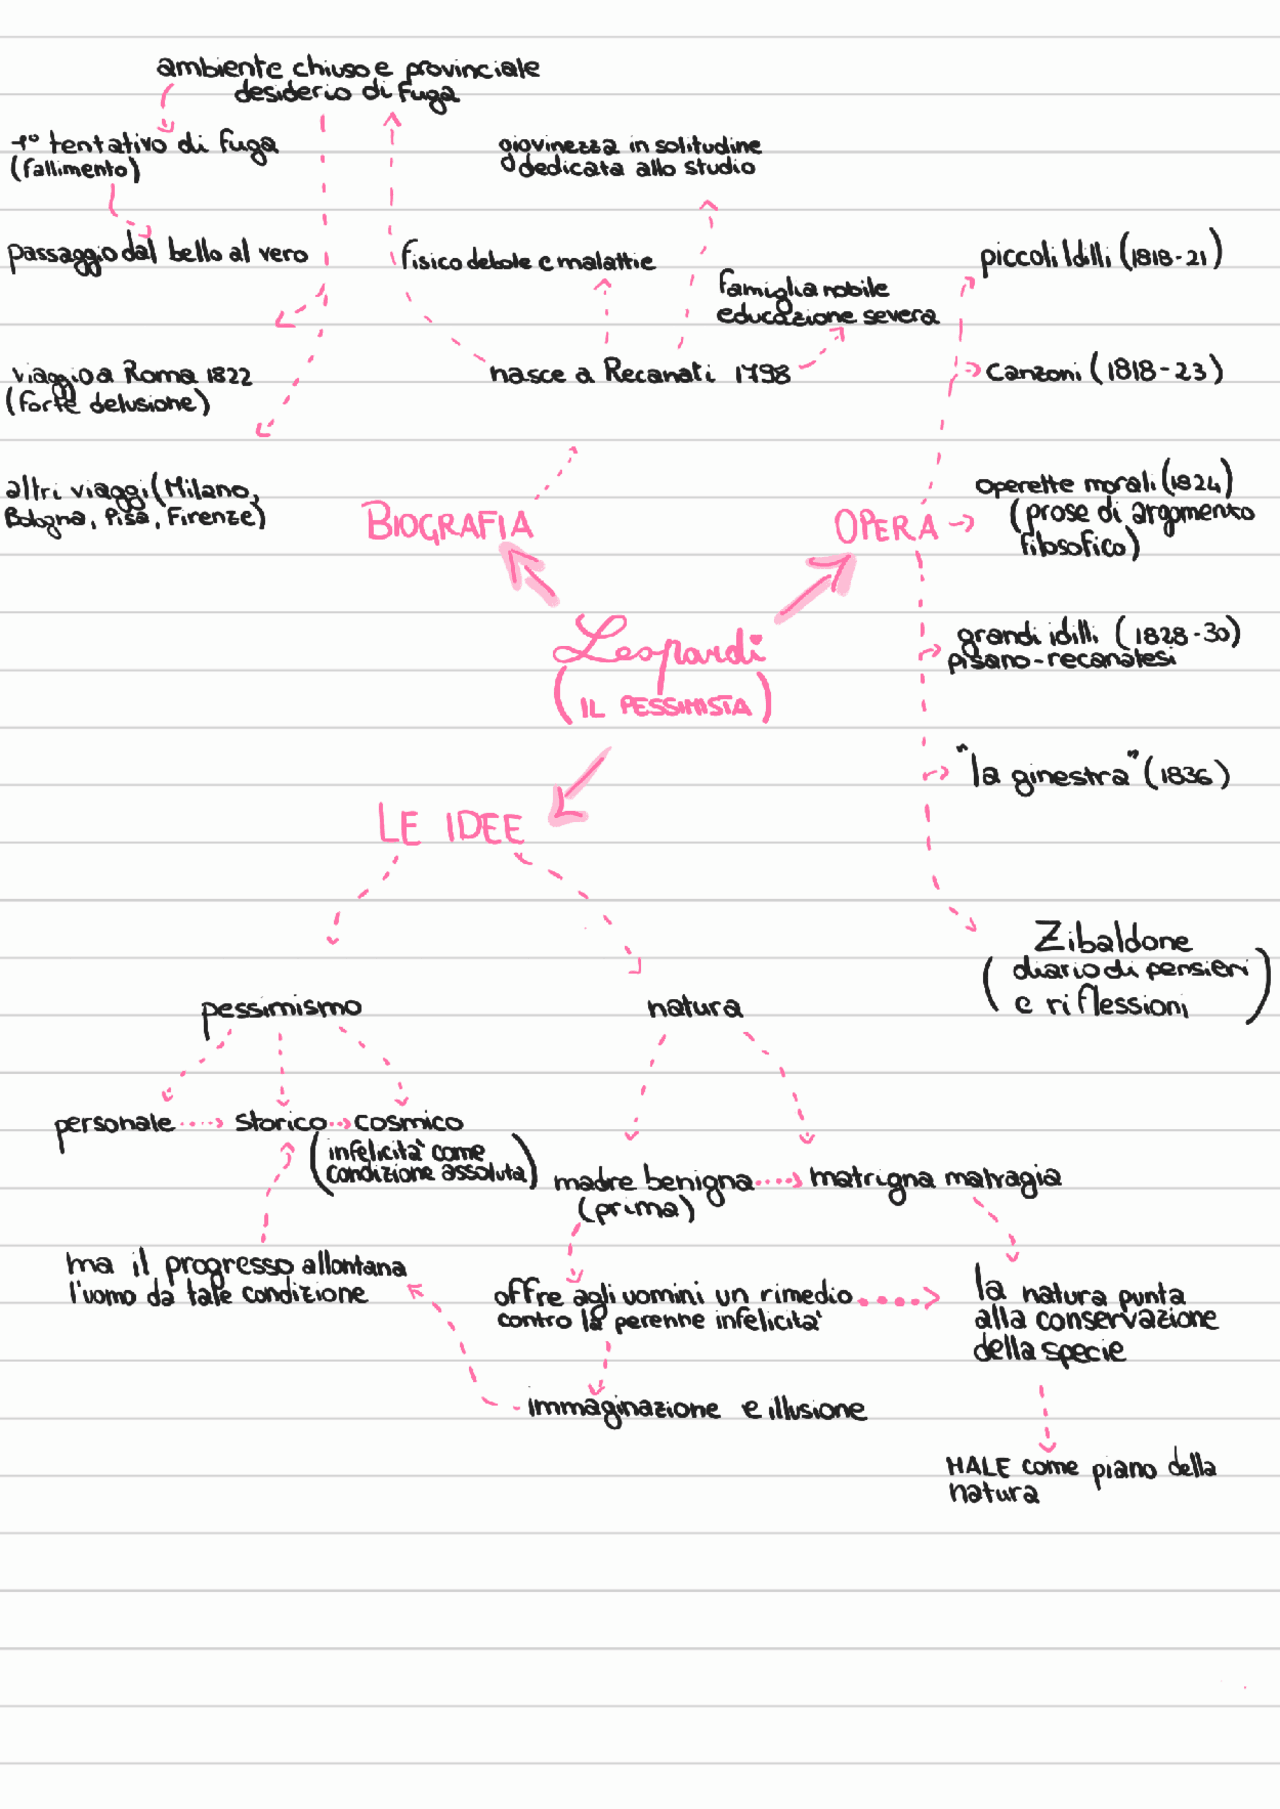 ambiente chiuso e provinciale
desiderio di fuga
1° tentativo di fuga
(fallimento)
passaggio dal bello al vero
viaggio a Roma 1822
(forte delusione)
altri viaggi (Milano,
Bologna, Pisa, Firenze)
giovinezza in solitudine
dedicata allo studio
fisico debole e malattie
famiglia nobile
educazione severa
nasce a Recanati 1798
BIOGRAFIA
OPERA
piccoli Idilli (1818-21)
Canzoni (1818-23)
operette morali (1824)
(prose di argomento
filosofico)
grandi idilli (1828-30)
pisano-recanatesi
"la ginestra" (1836)
Zibaldone
(diario di pensieri
e riflessioni)
Leopardi
(IL PESSIMISTA)
LE IDEE
pessimismo
natura
personale
storico
cosmico
(infelicità come
condizione assoluta)
madre benigna
(prima)
matrigna malvagia
ma il progresso allontana
l'uomo da tale condizione
offre agli uomini un rimedio
contro la perenne infelicità
la natura punta
alla conservazione
della specie
immaginazione e illusione
MALE come piano della
natura